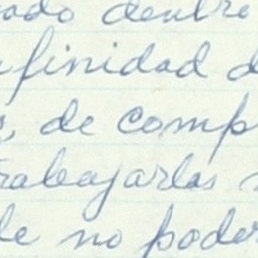 ado dentro
finidad d
, de comp
trabajarlas
de no poder